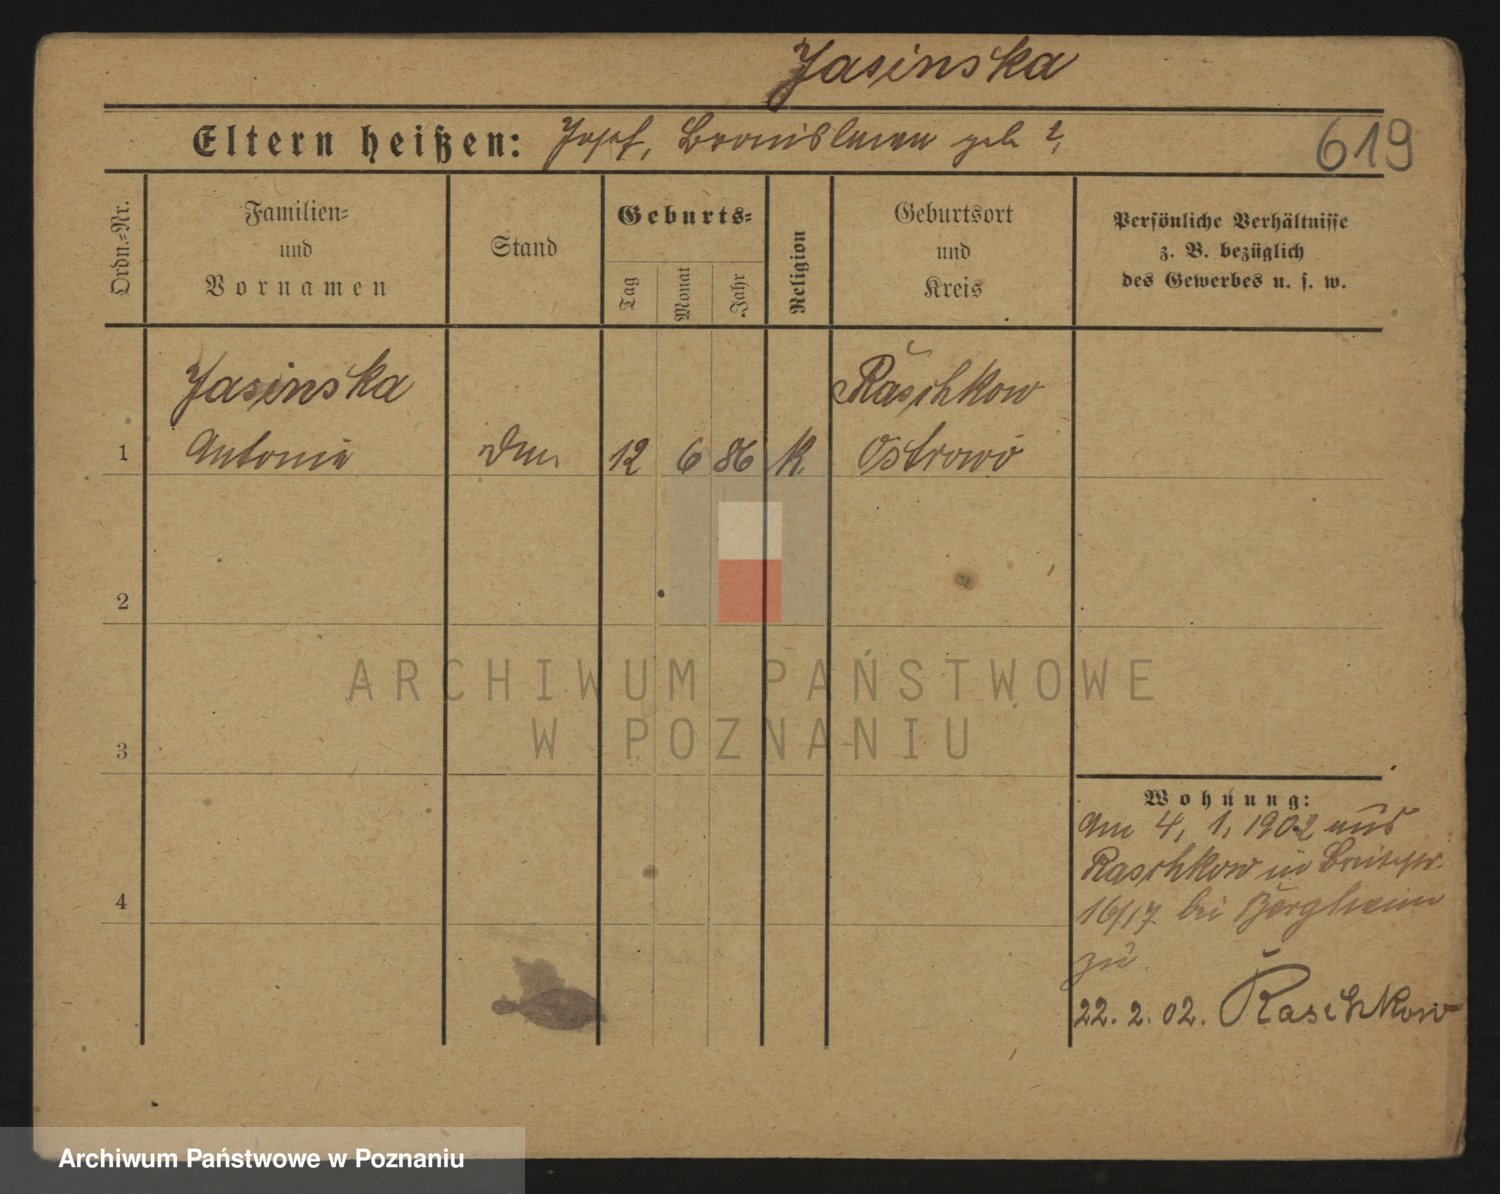 Jasinska
Eltern heißen: Josef, Bronislawa geb ?
619
Ordn.-Nr.
Familien-
und
Vornamen
Stand
Geburts-
Tag
Monat
Jahr
Religion
Geburtsort
und
Kreis
Persönliche Verhältnisse
z. B. bezüglich
des Gewerbes u. s. w.
Jasinska
Raschkow
1
Antonie
12
6
86
K
Ostrowo
2
3
4
ARCHIWUM PAŃSTWOWE
W POZNANIU
Wohnung:
Am 4. 1. 1902 aus
Raschkow in Breitestr.
16/17 bei
zu
22. 2. 02. Raschkow
Archiwum Państwowe w Poznaniu